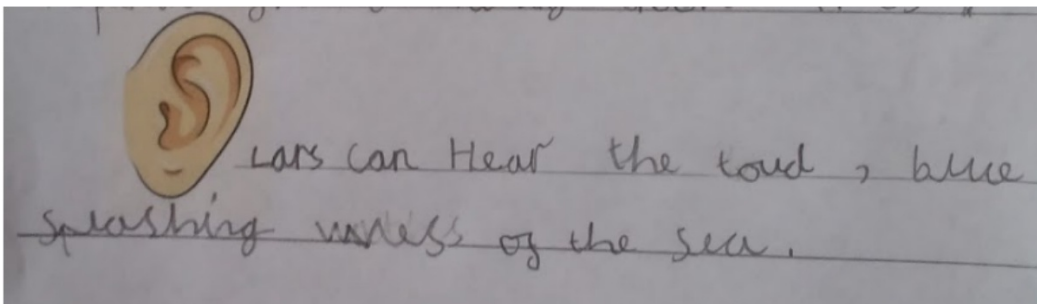 Lars can Hear the loud , blue
splashing of the sea.